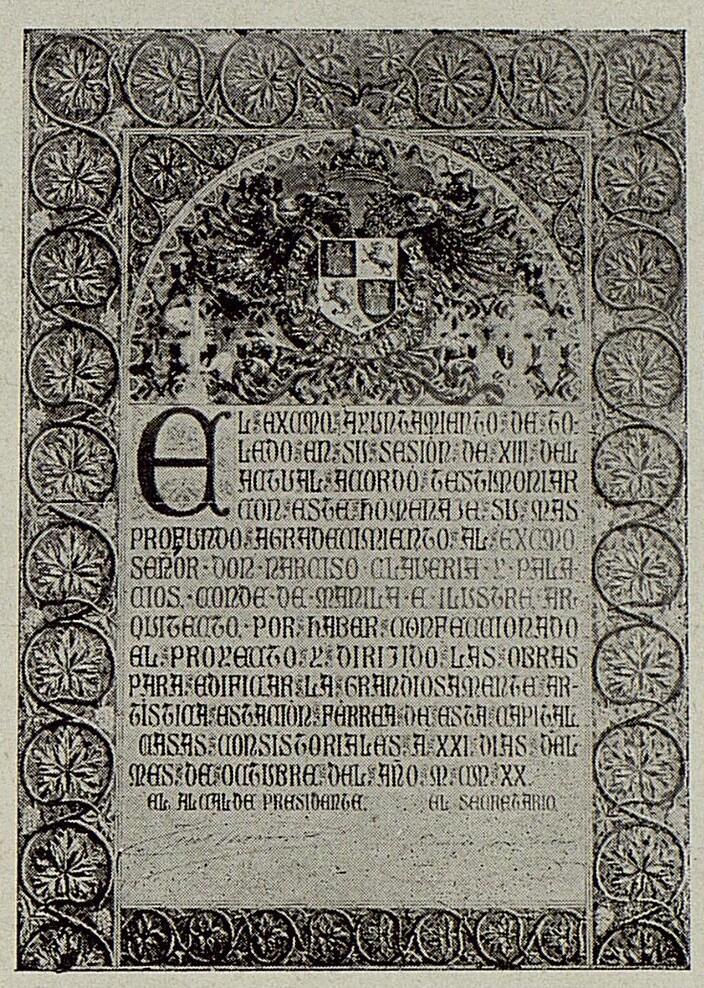 EL·EXCMO·AYUNTAMIENTO·DE·TO-
LEDO·EN·SU·SESIÓN·DE·XIII·DEL
ACTUAL·ACORDÓ·TESTIMONIAR
CON·ESTE·HOMENAJE·SU·MAS
PROFUNDO·AGRADECIMIENTO·AL·EXCMO
SEÑOR·DON·NARCISO CLAVERIA·Y·PALA-
CIOS,·CONDE·DE·MANILA·E·ILUSTRE·AR-
QUITECTO,·POR·HABER·CONFECCIONADO
EL·PROYECTO·Y·DIRIJIDO·LAS·OBRAS
PARA·EDIFICAR·LA·GRANDIOSAMENTE·AR-
TÍSTICA·ESTACION·FÉRREA·DE·ESTA·CAPITAL.
CASAS·CONSISTORIALES·A·XXI·DIAS·DEL
MES·DE·OCTUBRE·DEL·AÑO·M·CM·XX.
EL ALCALDE PRESIDENTE. EL SECRETARIO